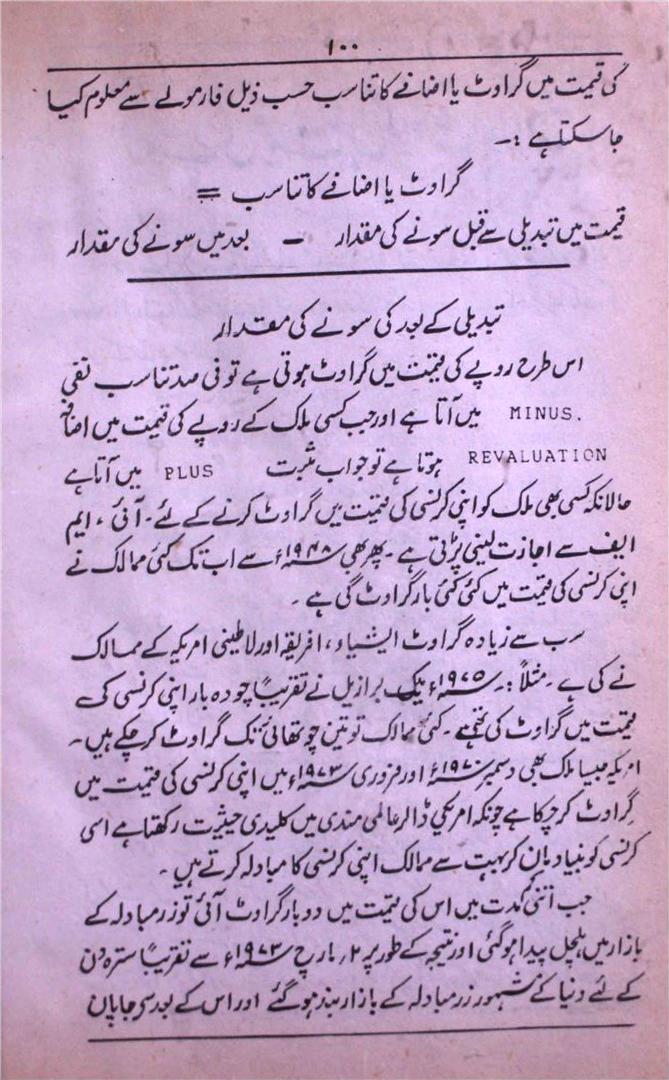 ۱۰۰
کی قیمت میں گراوٹ یا اضافے کا تناسب حسب ذیل فارمولے سے معلوم کیا
جا سکتا ہے :۔
گراوٹ یا اضافے کا تناسب =
قیمت میں تبدیلی سے قبل سونے کی مقدار — بعد میں سونے کی مقدار
تبدیلی کے بعد کی سونے کی مقدار
اس طرح روپے کی قیمت میں گراوٹ ہوتی ہے تو فی صد تناسب نفی
MINUS. میں آتا ہے اور جب کسی ملک کے روپے کی قیمت میں اضافہ
REVALUATION ہوتا ہے تو جواب مثبت PLUS میں آتا ہے
حالانکہ کسی بھی ملک کو اپنی کرنسی کی قیمت میں گراوٹ کرنے کے لئے ۔ آئی ، ایم
ایف سے اجازت لینی پڑتی ہے ۔ پھر بھی ۱۹۴۸ء سے اب تک کئی ممالک نے
اپنی کرنسی کی قیمت میں کئی کئی بار گراوٹ کی ہے ۔
سب سے زیادہ گراوٹ ایشیاء ، افریقہ اور لاطینی امریکہ کے ممالک
نے کی ہے ۔ مثلاً :۔ ۱۹۷۵ء تک برازیل نے تقریباً چودہ بار اپنی کرنسی کی
قیمت میں گراوٹ کی تھی ۔ کئی ممالک تو تین چوتھائی تک گراوٹ کر چکے ہیں ۔
امریکہ جیسا ملک بھی دسمبر ۱۹۷۰ء اور فروری ۱۹۷۳ء میں اپنی کرنسی کی قیمت میں
گراوٹ کر چکا ہے چونکہ امریکی ڈالر عالمی منڈی میں کلیدی حیثیت رکھتا ہے اسی
کرنسی کو بنیاد مان کر بہت سے ممالک اپنی کرنسی کا مبادلہ کرتے ہیں ۔
جب اتنی مدت میں اس کی قیمت میں دو بار گراوٹ آئی تو زرمبادلہ کے
بازار میں ہلچل پیدا ہو گئی اور نتیجہ کے طور پر ۲, مارچ ۱۹۷۳ء سے تقریباً سترہ دن
کے لئے دنیا کے مشہور زرمبادلہ کے بازار بند ہو گئے اور اس کے بعد سے جاپان